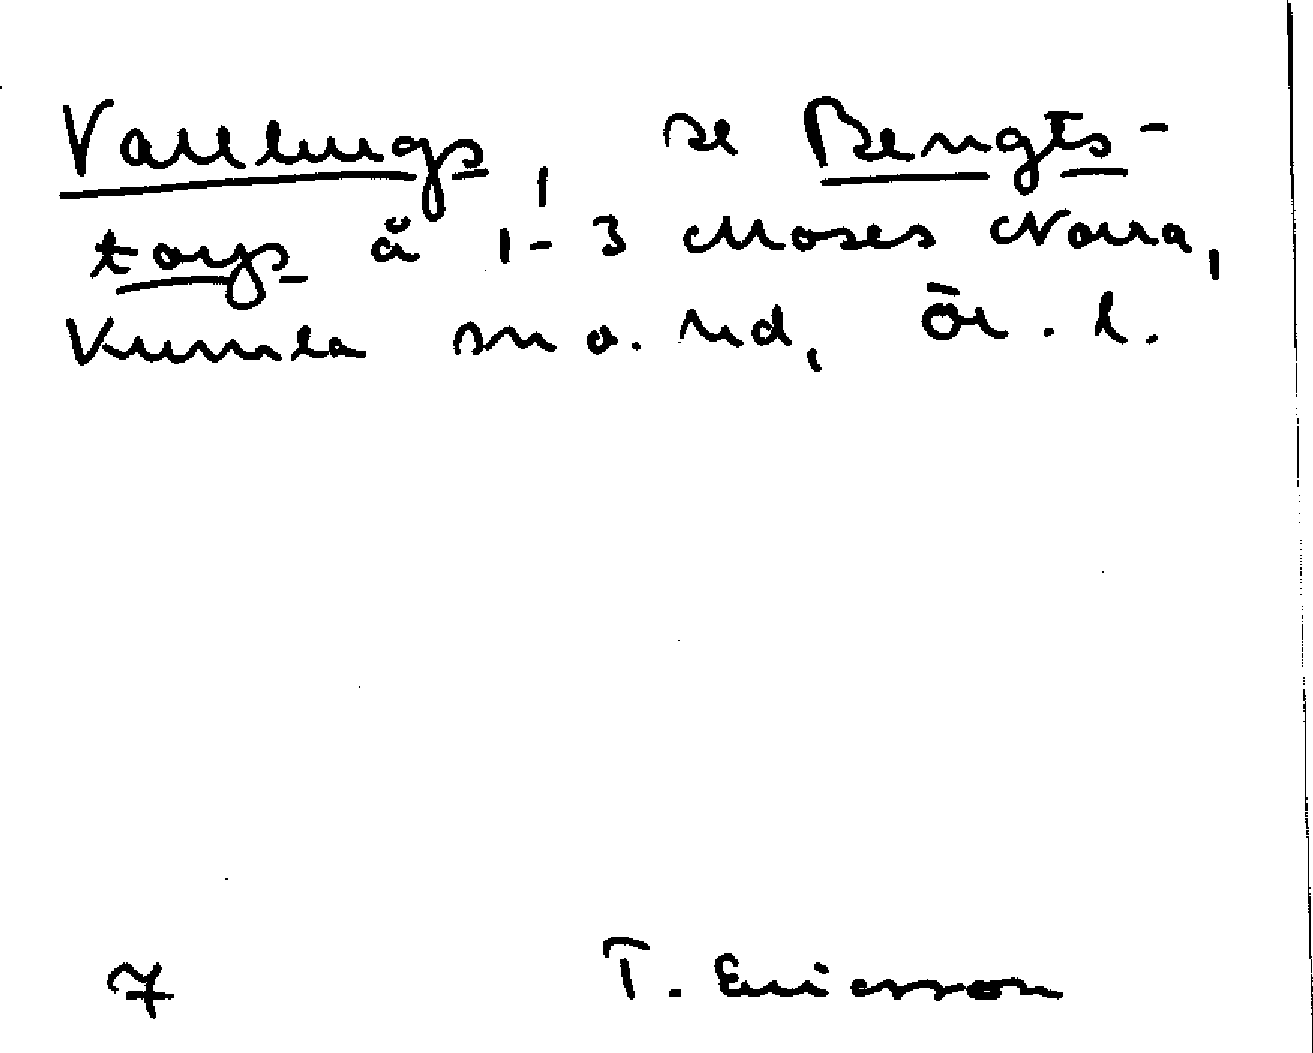 se Bengts-
torp å 1-3 Moses Norra,
Kumla sn o. hd, Ör. l.
7 T. Ericsson